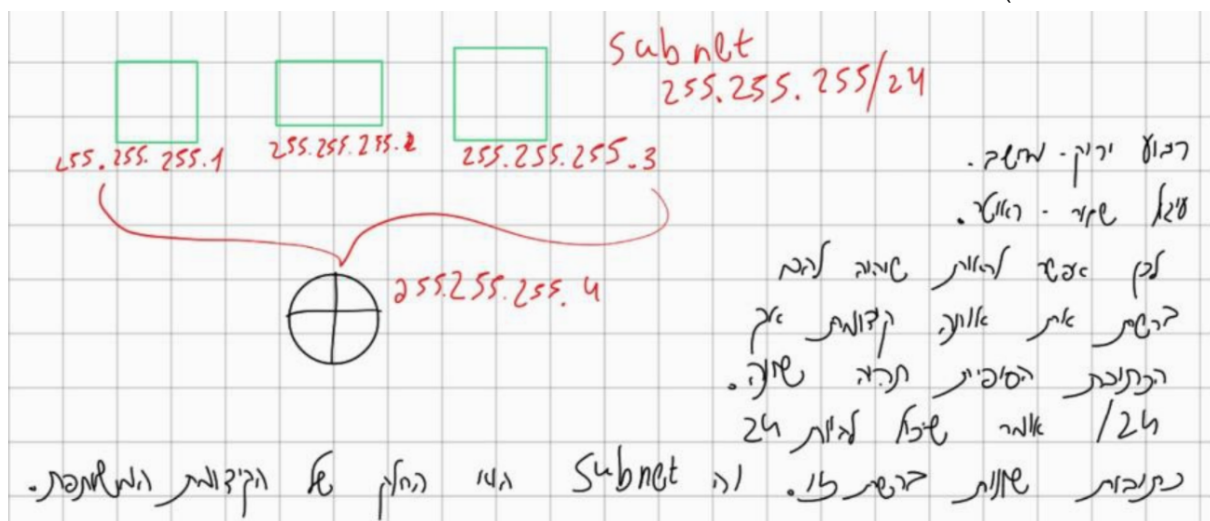 subnet
255.255.255/24
255.255.255.1
255.255.255.2
255.255.255.3
255.255.255.4
רבוע ירוק - מחשב.
עיגול שחור - ראוטר.
לכן אפשר לראות שיהיה להם
ברשת את אותה קידומת אך
הכתובת הסופית תהיה שונה.
/24 אומר שיכול להיות 24
כתובות שונות ברשת זו. וה subnet הוא החלק של הקידומת המשותפת.